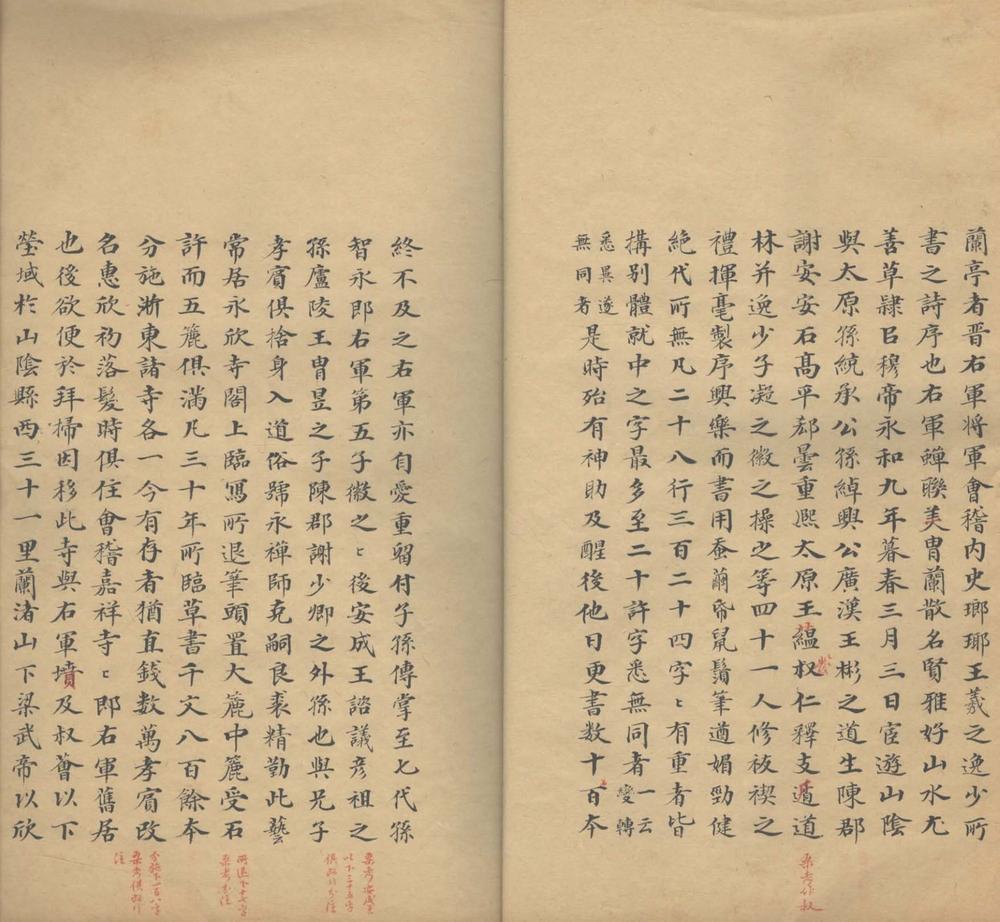 蘭亭者晋右軍將軍會稽内史瑯瑘王羲之逸少所
書之詩序也右軍蟬聮美胄蘭散名賢雅好山水尤
善草隷㠯穆帝永和九年暮春三月三日宦遊山陰
與太原孫統承公孫綽興公廣漢王彬之道生陳郡
謝安安石髙平郄曇重熈太原王緼叔仁釋支遁道
林并逸少子凝之徽之操之等四十一人修祓禊之
禮揮毫製序興樂而書用蚕繭帋鼠鬚筆遒媚勁健
絶代所無凡二十八行三百二十四字〻有重者皆
搆别體就中之字最多至二十許字悉無同者一云變轉
悉異遂無同者是時殆有神助及醒後他日更書数十百夲
終不及之右軍亦自愛重畱付子孫傳掌至七代孫
智永即右軍第五子徽之〻後安成王諮議彦祖之
孫廬陵王胄昱之子陳郡謝少卿之外孫也與兄子
孝賓俱捨身入道俗號永禪師克嗣良裘精勤此藝
常居永欣寺閣上臨冩所退筆頭置大簏中簏受石
許而五簏俱滿凡三十年所臨草書千文八百餘夲
分施浙東諸寺各一今有存者猶直錢数萬孝賓改
名惠欣初落髮時俱住會稽嘉祥寺〻即右軍舊居
也後欲便於拜掃因移此寺與右軍墳及叔薈以下
塋域於山陰縣西三十一里蘭渚山下梁武帝以欣
桒考作叔
桒考安成王
以下二十五字
俱細行分注
所退下十七字
桒考分注
分施下一百八字
桒考俱細行
注